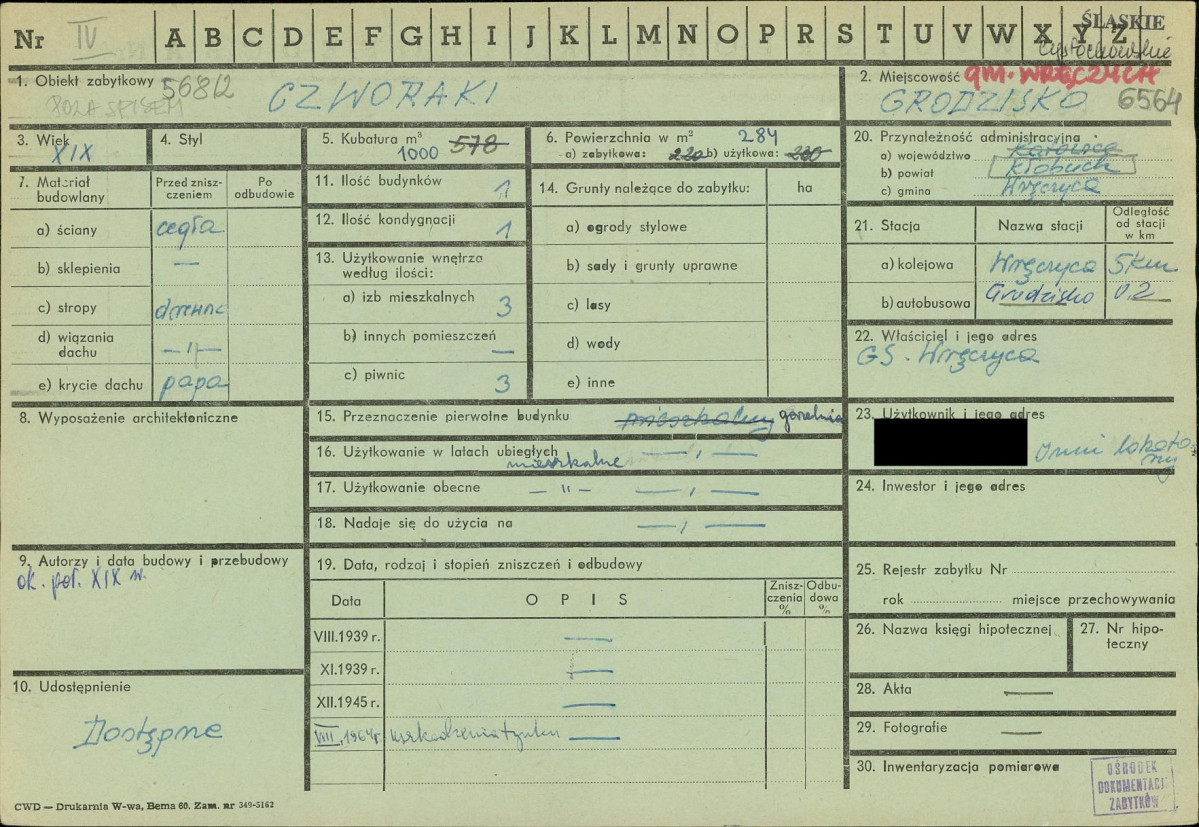 Nr IV A B C D E F G H I J K L M N O P R S T U V W X Y Z ŚLĄSKIE
częstochowskie
1. Obiekt zabytkowy 568/2
POZA SPISEM
CZWORAKI
2. Miejscowość GM. WRĘCZYCA
GRODZISKO 6564
3. Wiek
XIX
4. Styl
5. Kubatura m³ 578
1000
6. Powierzchnia w m² 284
a) zabytkowa: 220 b) użytkowa: 280
20. Przynależność administracyjna
a) województwo Katowice
b) powiat Kłobuck
c) gmina Wręczyca
7. Materiał budowlany
Przed zniszczeniem
Po odbudowie
a) ściany cegła
b) sklepienia —
c) stropy drewno
d) wiązania dachu — " —
e) krycie dachu papa
11. Ilość budynków 1
12. Ilość kondygnacji 1
13. Użytkowanie wnętrza według ilości:
a) izb mieszkalnych 3
b) innych pomieszczeń —
c) piwnic 3
14. Grunty należące do zabytku: ha
a) ogrody stylowe
b) sady i grunty uprawne
c) lasy
d) wody
e) inne
21. Stacja Nazwa stacji Odległość od stacji w km
a) kolejowa Wręczyca 5 km
b) autobusowa Grodzisko 0,2
22. Właściciel i jego adres
GS. Wręczyca
8. Wyposażenie architektoniczne
15. Przeznaczenie pierwotne budynku mieszkalny gorzelnia
16. Użytkowanie w latach ubiegłych — " —
mieszkalne
17. Użytkowanie obecne — " — — " —
18. Nadaje się do użycia na — " —
23. Użytkownik i jego adres
Inni lokatorzy
24. Inwestor i jego adres
9. Autorzy i data budowy i przebudowy
ok. poł. XIX w.
19. Data, rodzaj i stopień zniszczeń i odbudowy
Data OPIS Zniszczenia % Odbudowa %
VIII.1939 r. —
XI.1939 r. —
XII.1945 r. —
VIII.1964r. uszkodzenia tynku —
25. Rejestr zabytku Nr
rok miejsce przechowywania
26. Nazwa księgi hipotecznej
27. Nr hipoteczny
10. Udostępnienie
Dostępne
28. Akta —
29. Fotografie —
30. Inwentaryzacja pomiarowa
OŚRODEK
DOKUMENTACJI
ZABYTKÓW
CWD — Drukarnia W-wa, Bema 60. Zam. nr 349-5162